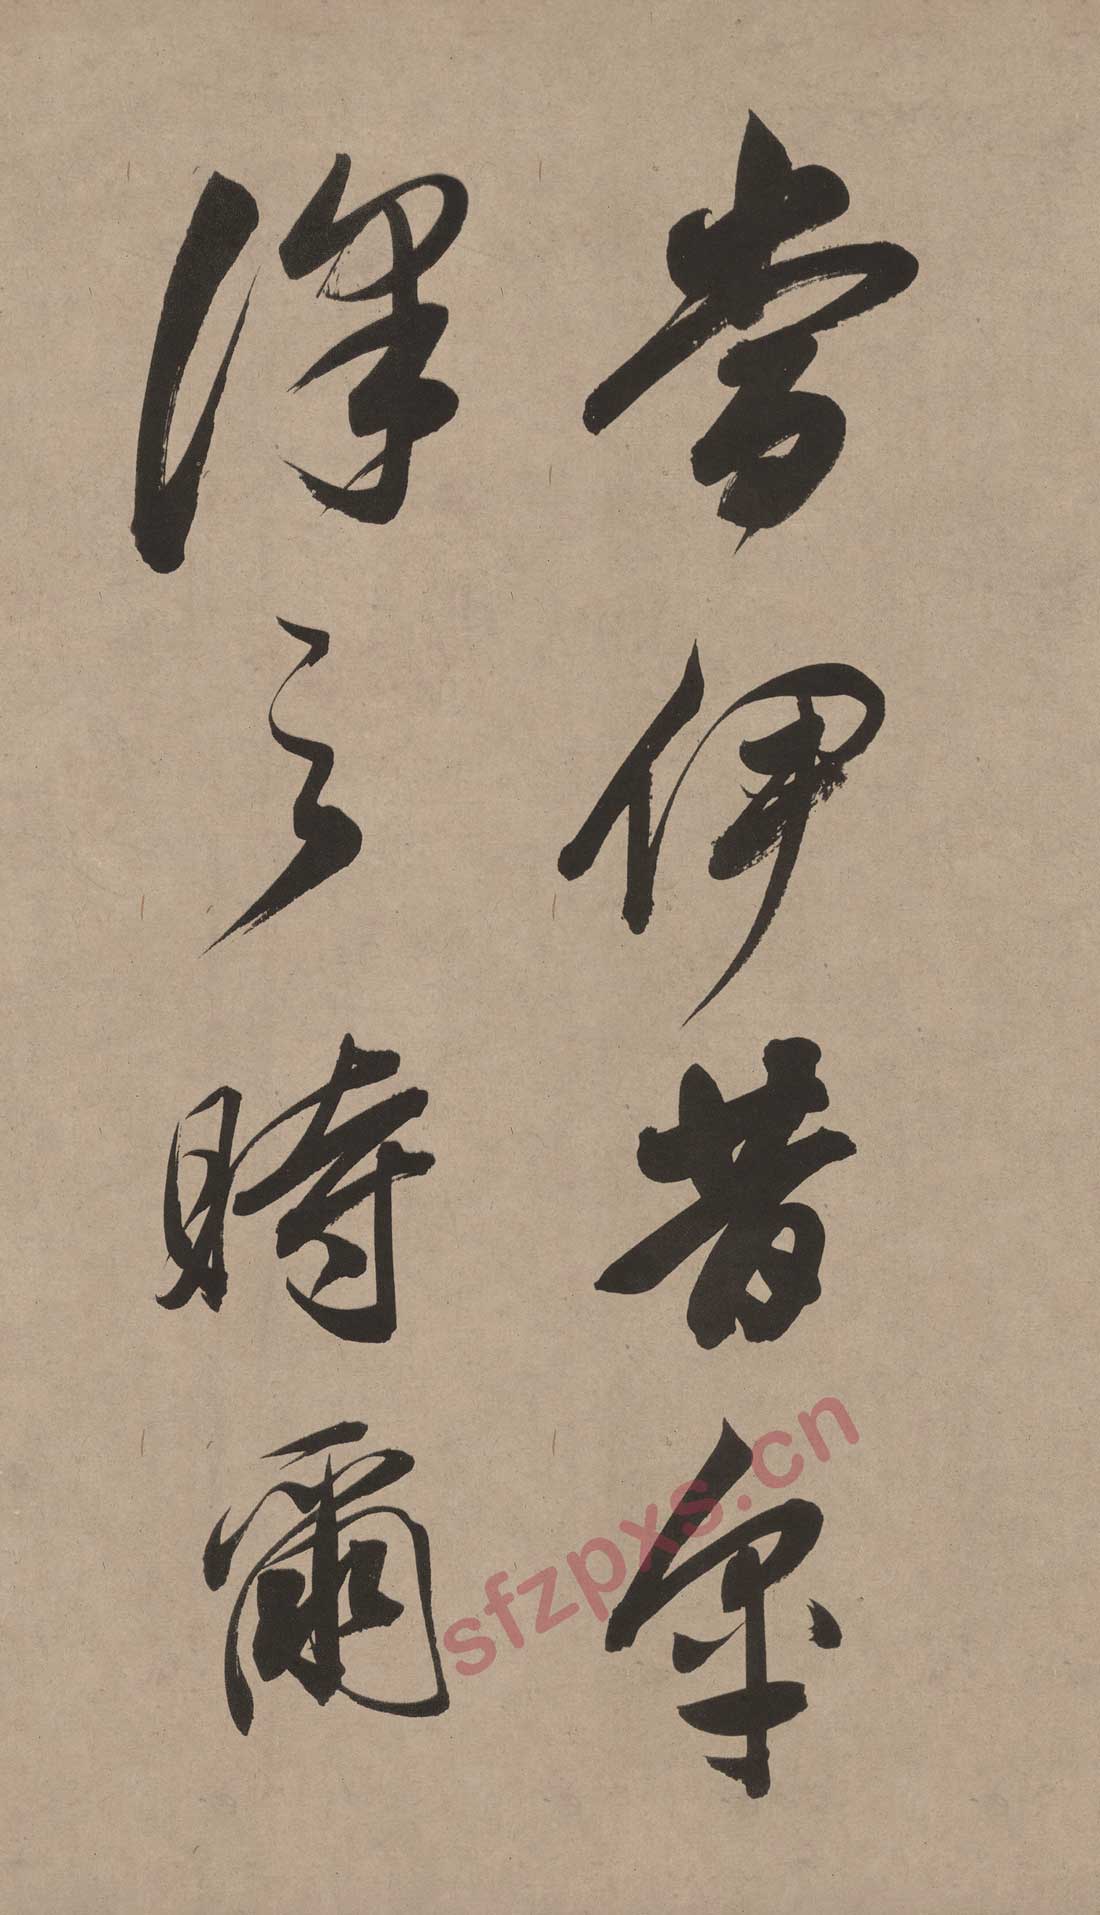 當伊昔卒
澤之時爾
sfzpxs.cn